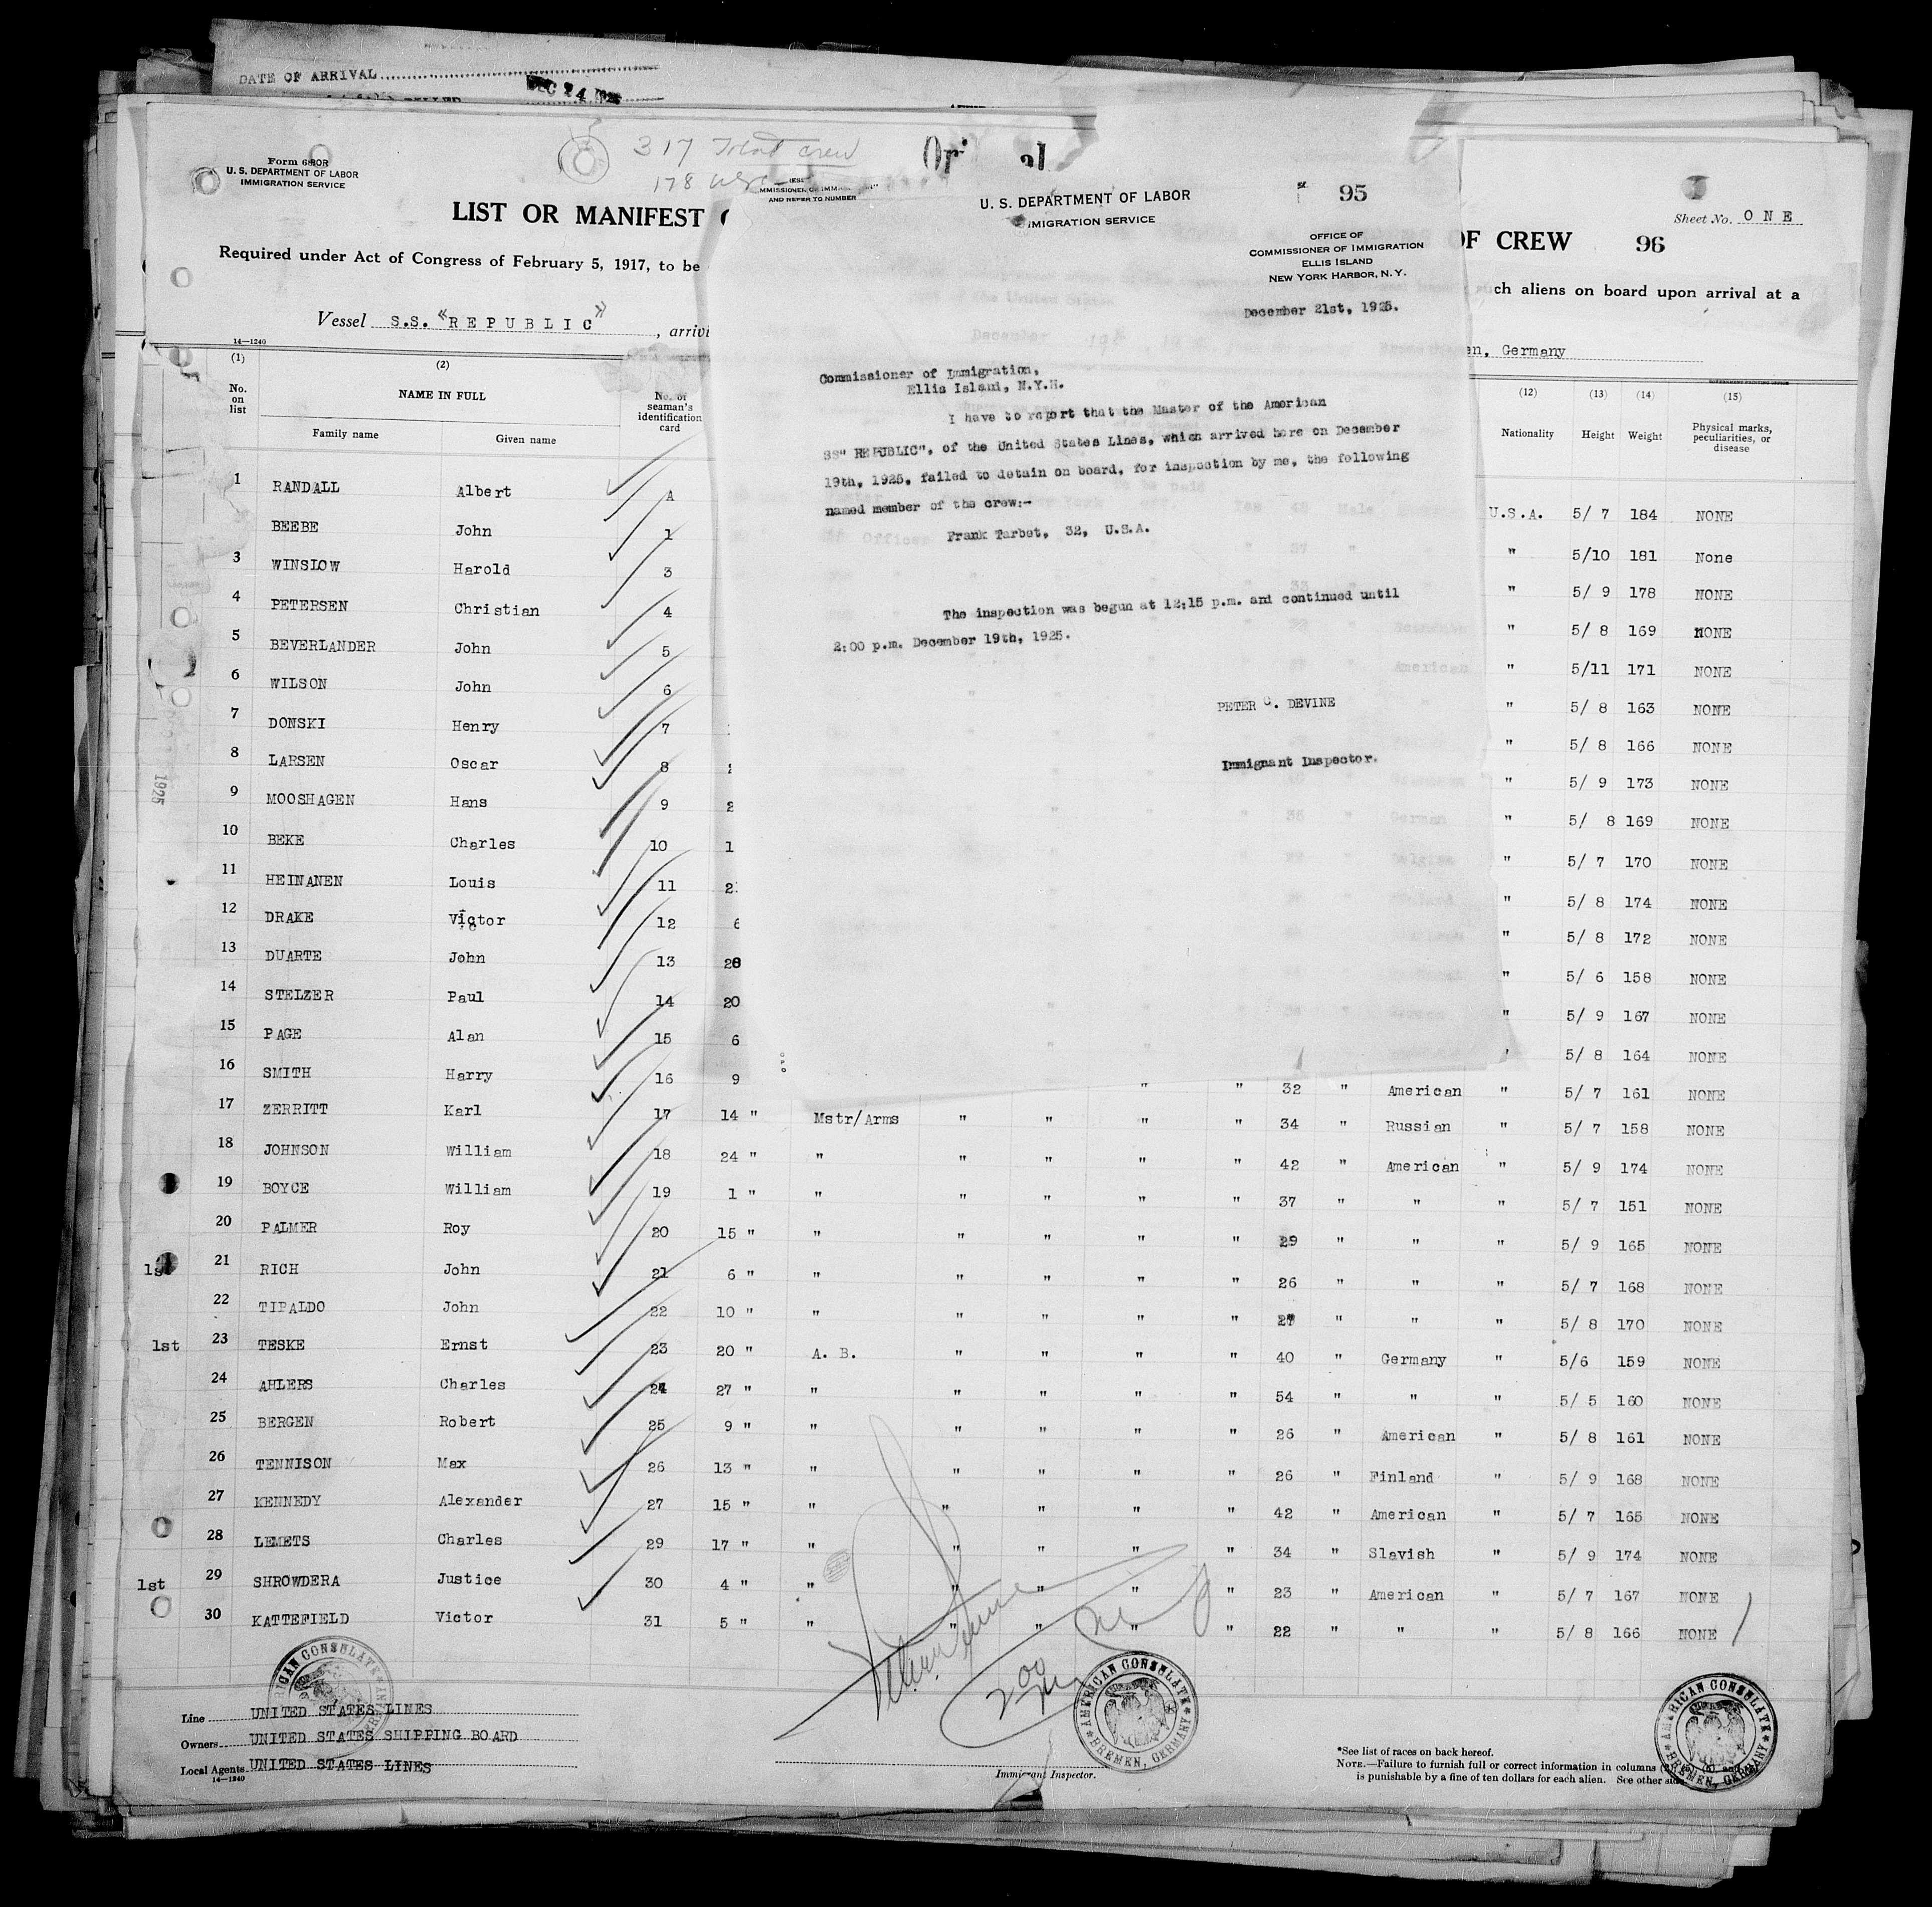 DATE OF ARRIVAL
DEC 24
317 Total crew
178
Form 680
U. S. DEPARTMENT OF LABOR
IMMIGRATION SERVICE
LIST OR MANIFEST
Required under Act of Congress of February 5, 1917, to be
Vessel S.S. "REPUBLIC", arrivi
14—1240
AND REFER TO NUMBER
U. S. DEPARTMENT OF LABOR
IMMIGRATION SERVICE
95
OFFICE OF
COMMISSIONER OF IMMIGRATION
ELLIS ISLAND
NEW YORK HARBOR, N. Y.
December 21st, 1925.
Commissioner of Immigration,
Ellis Island, N.Y.H.
I have to report that the Master of the American
SS" REPUBLIC", of the United States Lines, which arrived here on December
19th, 1925, failed to detain on board, for inspection by me, the following
named member of the crew:-
Frank Tarbet, 32, U.S.A.
The inspection was begun at 12:15 p.m. and continued until
2:00 p.m. December 19th, 1925.
PETER C. DEVINE
Immigrant Inspector.
Sheet No. ONE
OF CREW 96
ch aliens on board upon arrival at a
en, Germany
(1) (2) (12) (13) (14) (15)
No. on list NAME IN FULL No. of seaman's identification card Nationality Height Weight Physical marks, peculiarities, or disease
Family name Given name
1 RANDALL Albert A U.S.A. 5/ 7 184 NONE
BEEBE John 1 " 5/10 181 None
3 WINSLOW Harold 3 " 5/ 9 178 NONE
4 PETERSEN Christian 4 " 5/ 8 169 NONE
5 BEVERLANDER John 5 " 5/11 171 NONE
6 WILSON John 6 " 5/ 8 163 NONE
7 DONSKI Henry 7 " 5/ 8 166 NONE
8 LARSEN Oscar 8 " 5/ 9 173 NONE
9 MOOSHAGEN Hans 9 2 " 5/ 8 169 NONE
10 BEKE Charles 10 1 " 5/ 7 170 NONE
11 HEINANEN Louis 11 2 " 5/ 8 174 NONE
12 DRAKE Victor 12 6 " 5/ 8 172 NONE
13 DUARTE John 13 28 " 5/ 6 158 NONE
14 STELZER Paul 14 20 " 5/ 9 167 NONE
15 PAGE Alan 15 6 " 5/ 8 164 NONE
16 SMITH Harry 16 9 " " 32 " American " 5/ 7 161 NONE
17 ZERRITT Karl 17 14 " Mstr/Arms " " " " 34 " Russian " 5/ 7 158 NONE
18 JOHNSON William 18 24 " " " " " " 42 " American " 5/ 9 174 NONE
19 BOYCE William 19 1 " " " " " " 37 " " " 5/ 7 151 NONE
20 PALMER Roy 20 15 " " " " " " 29 " " " 5/ 9 165 NONE
1st 21 RICH John 21 6 " " " " " " 26 " " " 5/ 7 168 NONE
22 TIPALDO John 22 10 " " " " " " 27 " " " 5/ 8 170 NONE
1st 23 TESKE Ernst 23 20 " A. B. " " " " 40 " Germany " 5/6 159 NONE
24 AHLERS Charles 24 27 " " " " " " 54 " " " 5/ 5 160 NONE
25 BERGEN Robert 25 9 " " " " " " 26 " American " 5/ 8 161 NONE
26 TENNISON Max 26 13 " " " " " " 26 " Finland " 5/ 9 168 NONE
27 KENNEDY Alexander 27 15 " " " " " " 42 " American " 5/ 7 165 NONE
28 LEMETS Charles 29 17 " " " " " " 34 " Slavish " 5/ 9 174 NONE
1st 29 SHROWDERA Justice 30 4 " " " " " " 23 " American " 5/ 7 167 NONE
30 KATTEFIELD Victor 31 5 " " " " " " 22 " " " 5/ 8 166 NONE
1925
AMERICAN CONSULATE BREMEN, GERMANY
AMERICAN CONSULATE BREMEN, GERMANY
Line UNITED STATES LINES
Owners UNITED STATES SHIPPING BOARD
Local Agents UNITED STATES LINES
14—1240
Immigrant Inspector.
*See list of races on back hereof.
NOTE.—Failure to furnish full or correct information in columns
is punishable by a fine of ten dollars for each alien. See other side